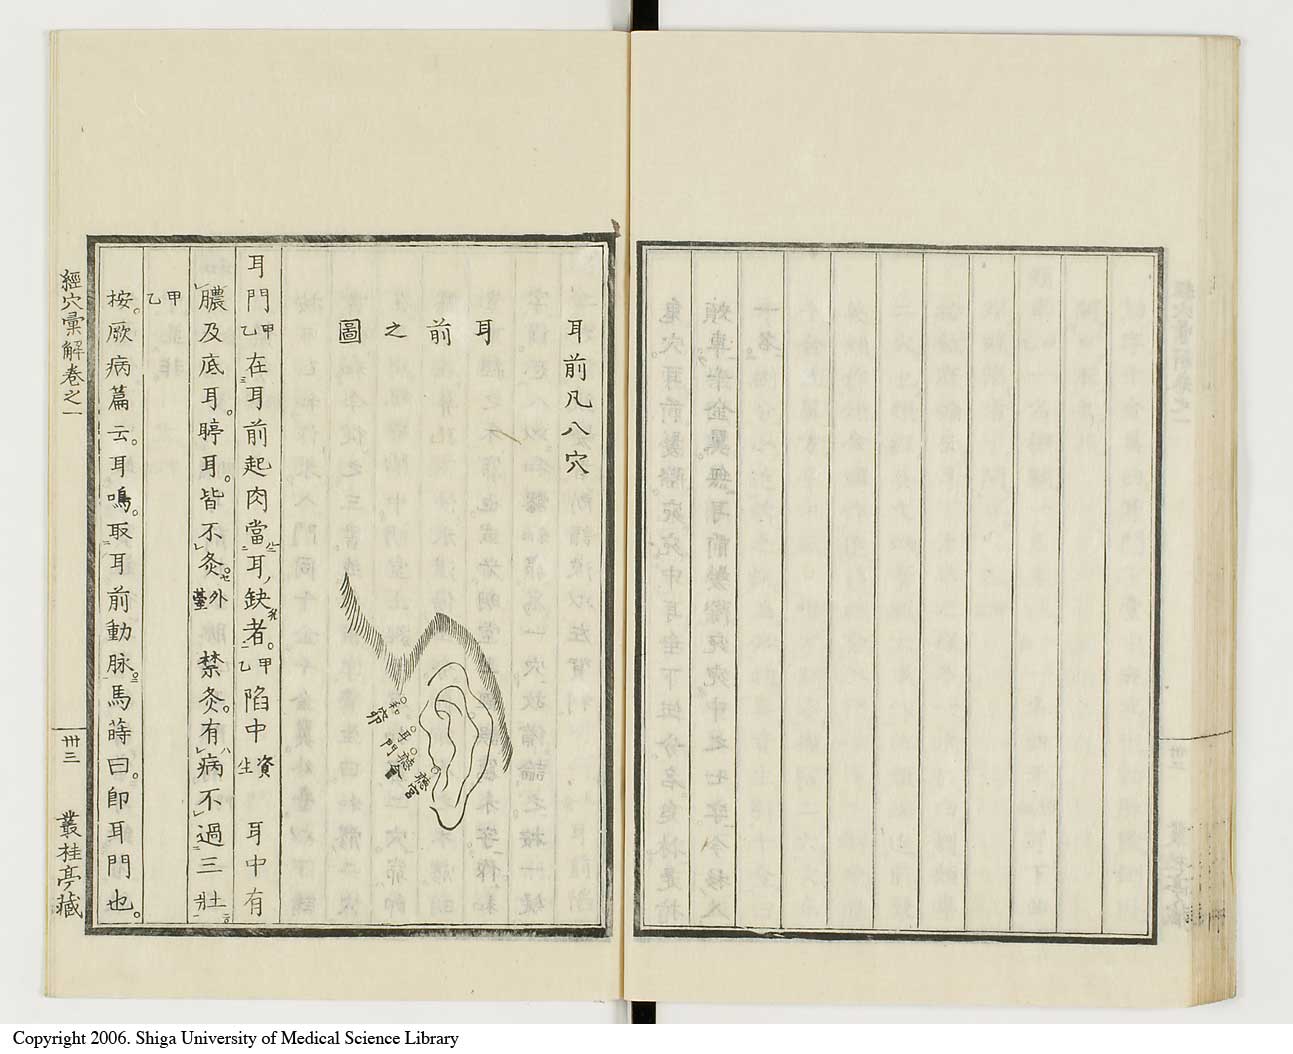 耳前凡八穴
耳前之圖
和窌
耳門
聴會
聴宮
耳門甲乙在耳前起肉當耳缺者。甲乙陷中資生 耳中有
膿及底耳。聤耳。皆不灸。外臺禁灸。有病不過三壯
甲乙
按。厥病篇云。耳鳴。取耳前動脉。馬蒔曰。卽耳門也。
經穴彙解卷之一
卅三
叢桂亭藏
Copyright 2006. Shiga University of Medical Science Library